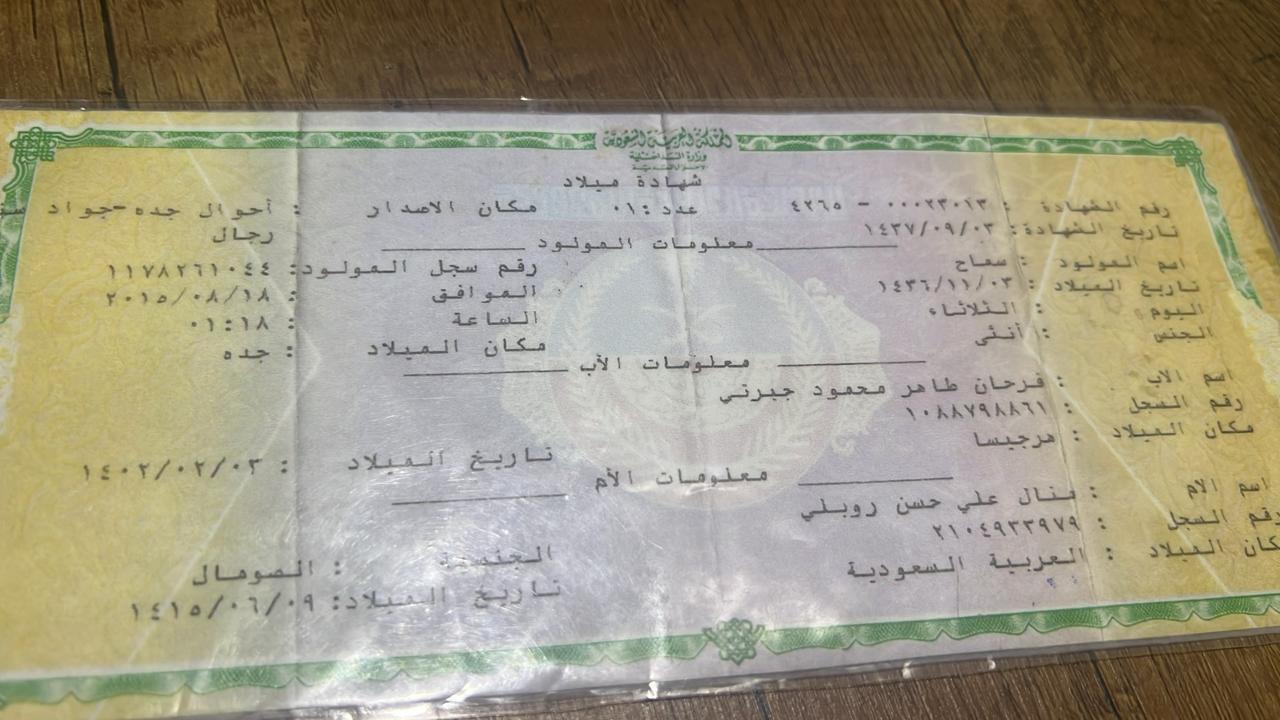 المملكة العربية السعودية
وزارة الداخلية
الأحوال المدنية
شهادة ميلاد
رقم الشهادة : ٠٠٠٢٣٠١٣ - ٤٢٦٥ عدد :٠١ مكان الاصدار : أحوال جده-جواد
تاريخ الشهادة: ١٤٣٧/٠٩/٠٣ رجال
معلومات المولود
اسم المولود : سماح رقم سجل المولود: ١١٧٨٢٦١٠٤٤
تاريخ الميلاد : ١٤٣٦/١١/٠٣ الموافق : ٢٠١٥/٠٨/١٨
اليوم : الثلاثاء الساعة : ٠١:١٨
الجنس : أنثى مكان الميلاد : جده
معلومات الأب
اسم الاب : فرحان طاهر محمود جبرتي
رقم السجل : ١٠٨٨٧٩٨٨٦١
مكان الميلاد : هرجيسا تاريخ الميلاد : ١٤٠٢/٠٢/٠٣
معلومات الأم
اسم الام : منال علي حسن روبلي
رقم السجل : ٢١٠٤٩٣٣٩٧٩ الجنسية : الصومال
مكان الميلاد : العربية السعودية تاريخ الميلاد: ١٤١٥/٠٦/٠٩